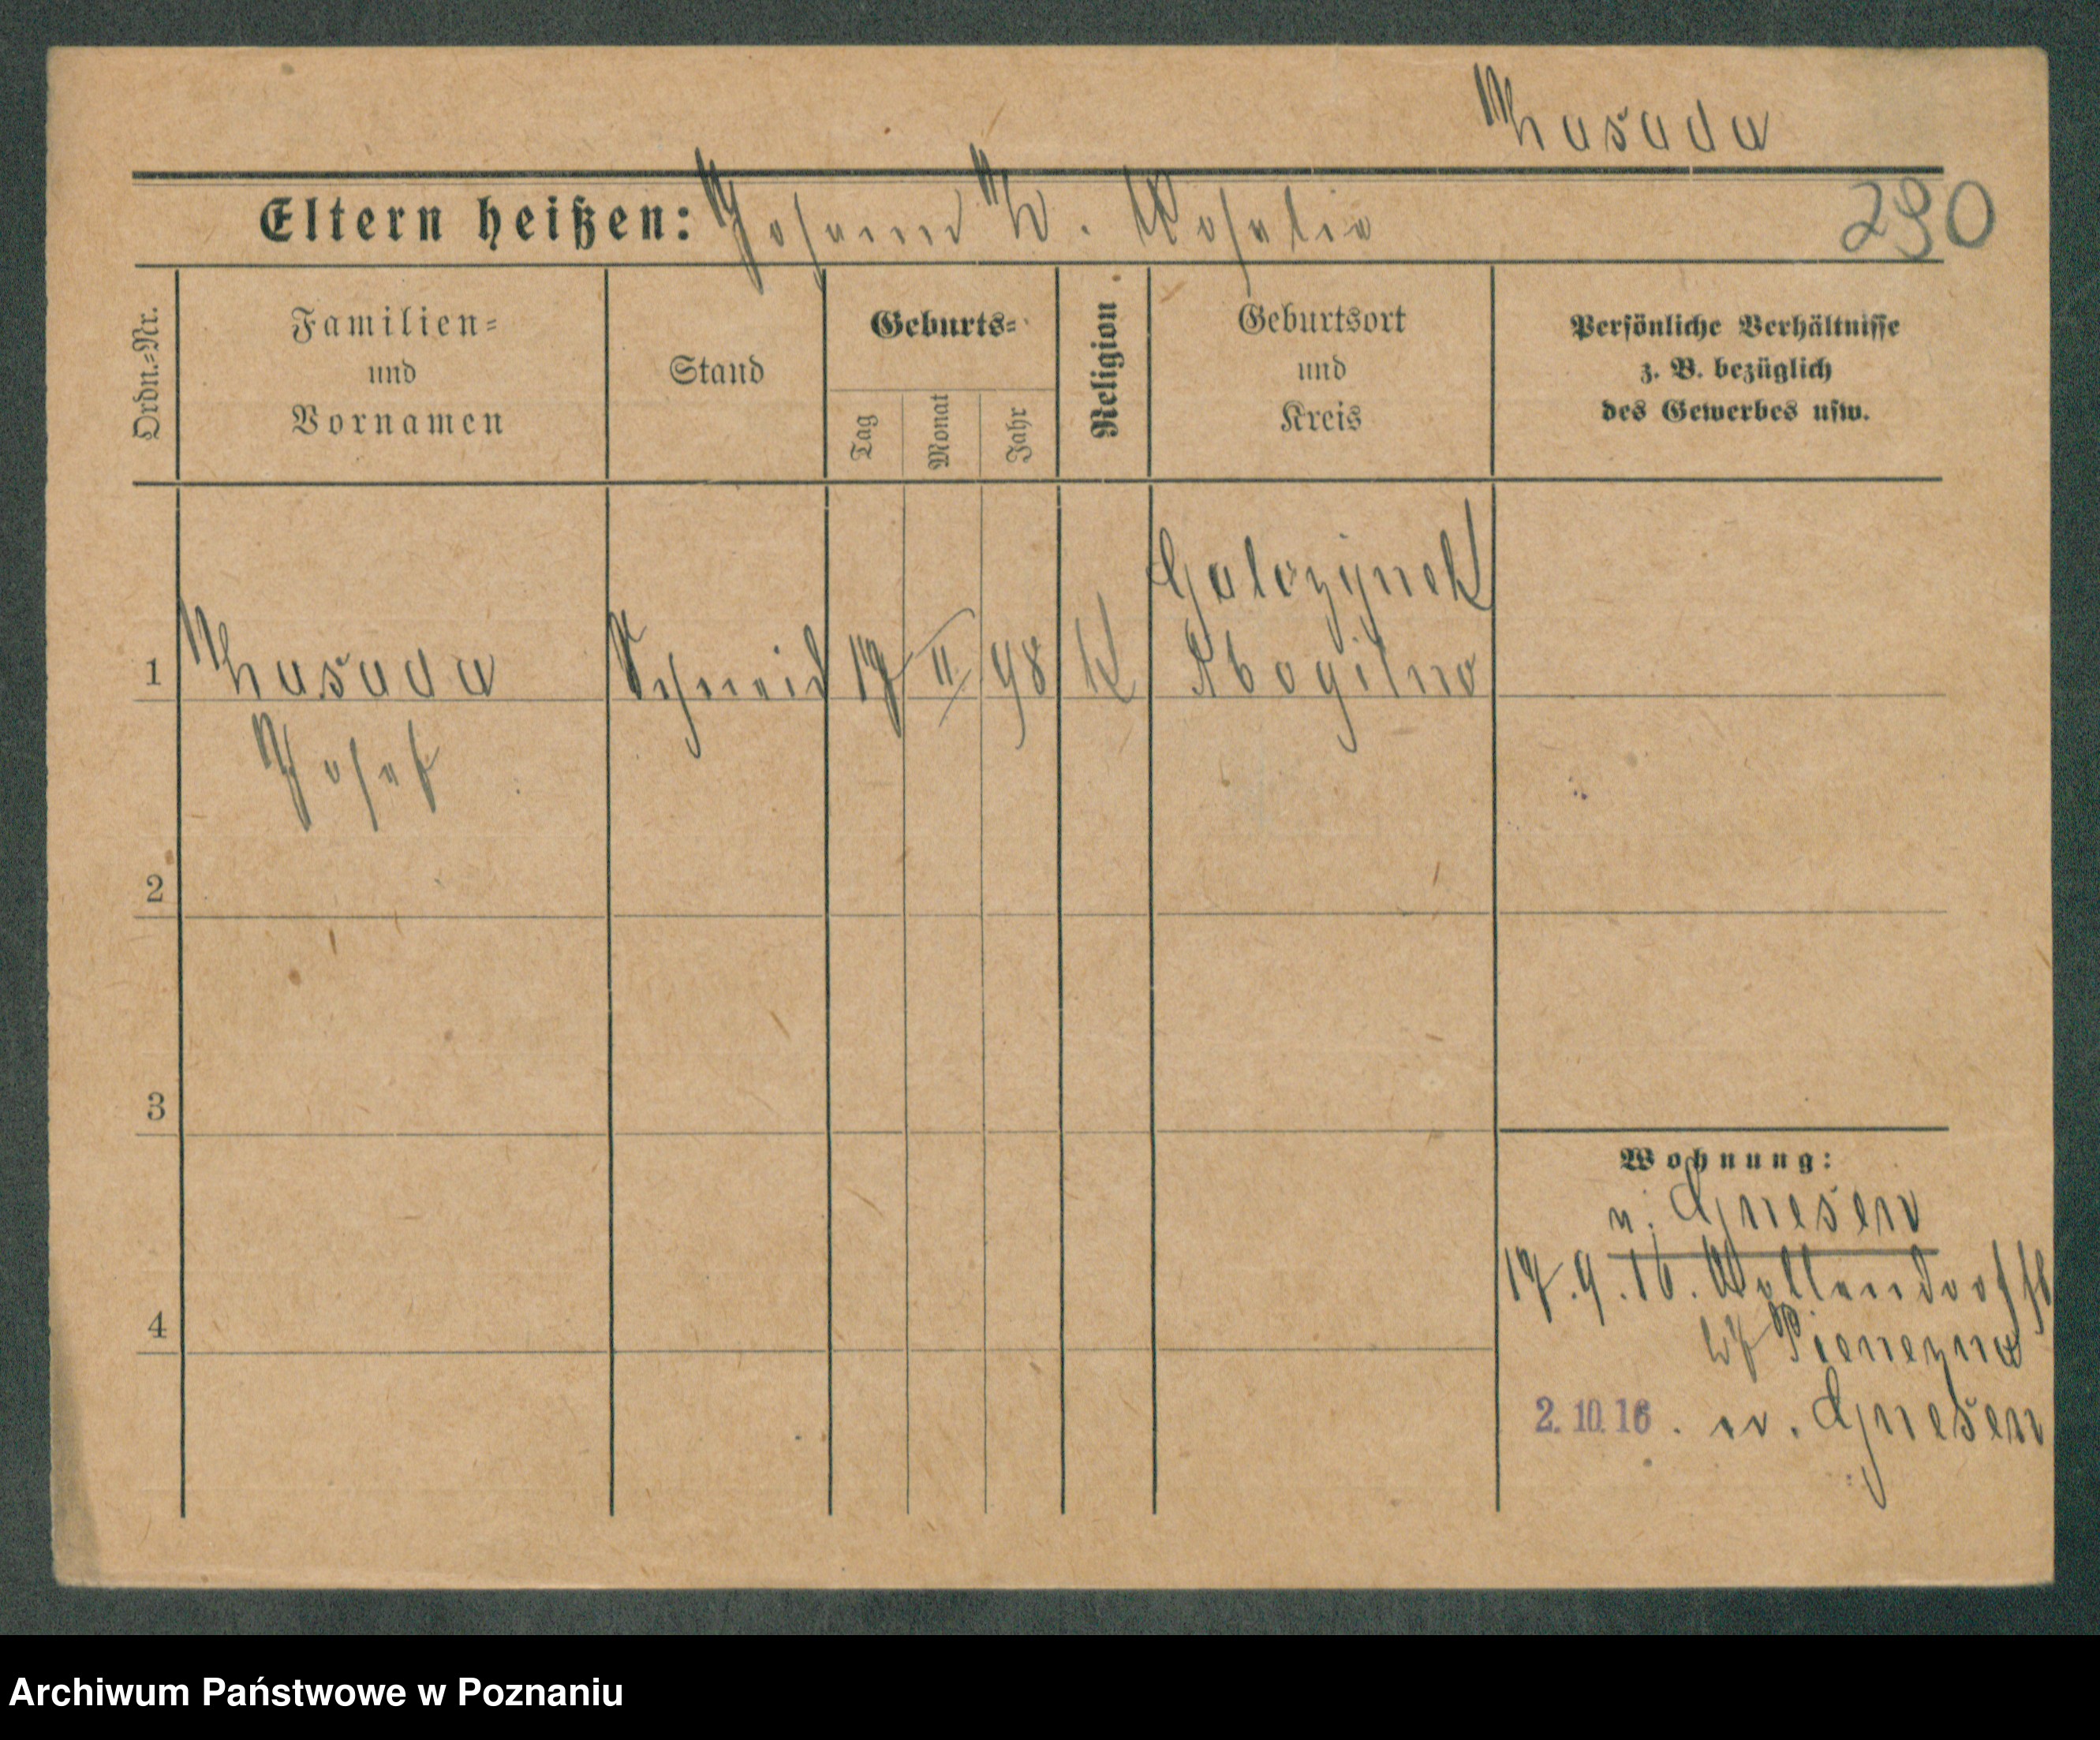 Kusada
Eltern heißen: Johann K. Rosalia
290
Ordn.=Nr.
Familien=
und
Vornamen
Stand
Geburts=
Tag
Monat
Jahr
Religion
Geburtsort
und
Kreis
Persönliche Verhältnisse
z. B. bezüglich
des Gewerbes usw.
1
Kusada
Josef
Schneid
17
II
98
K
Galczynek
Mogilno
2
3
4
Wohnung:
v. Gnesen
17.9.16.
2.10.16. n. Gnesen
Archiwum Państwowe w Poznaniu